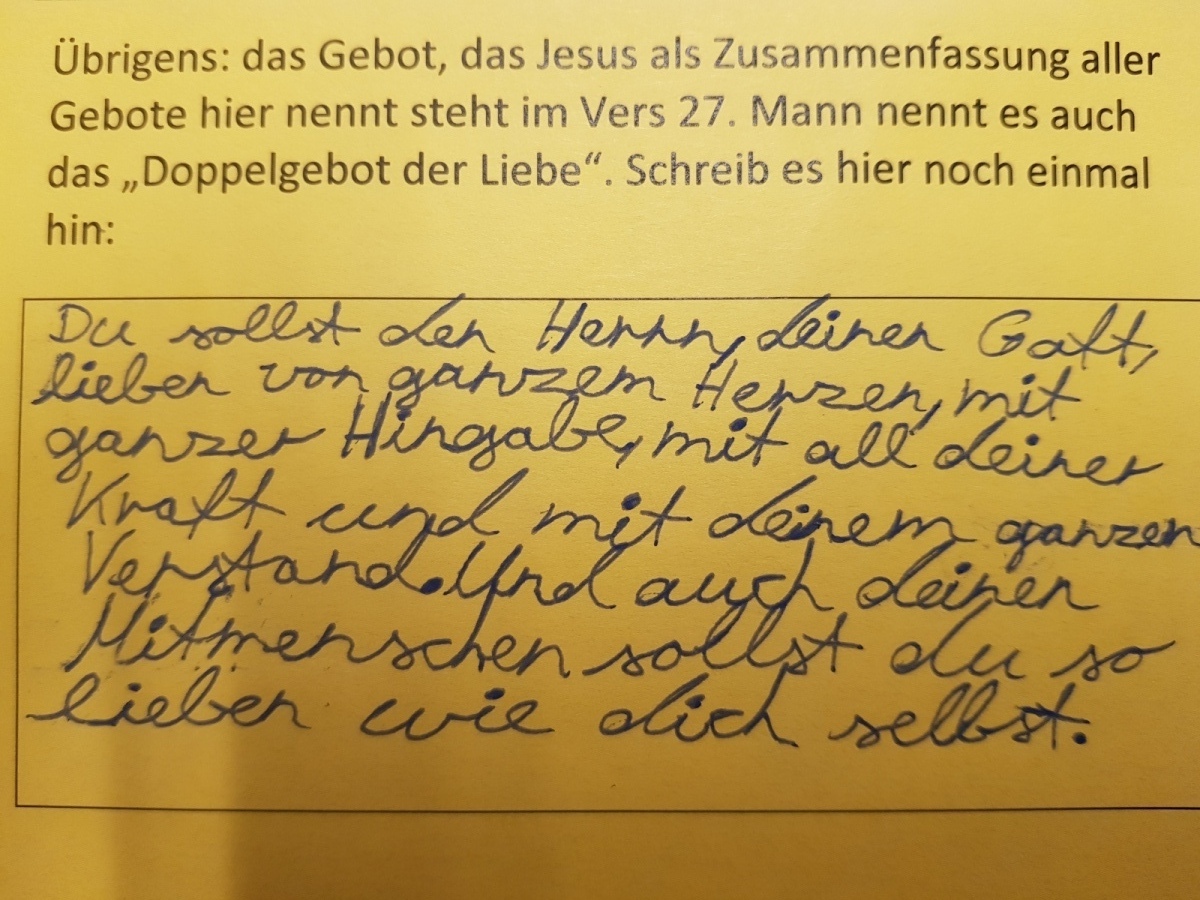 Übrigens: das Gebot, das Jesus als Zusammenfassung aller
Gebote hier nennt steht im Vers 27. Mann nennt es auch
das „Doppelgebot der Liebe“. Schreib es hier noch einmal
hin:
Du sollst den Herrn, deinen Gott,
lieben von ganzem Herzen, mit
ganzer Hingabe, mit all deiner
Kraft und mit deinem ganzen
Verstand. Und auch deinen
Mitmenschen sollst du so
lieben wie dich selbst.